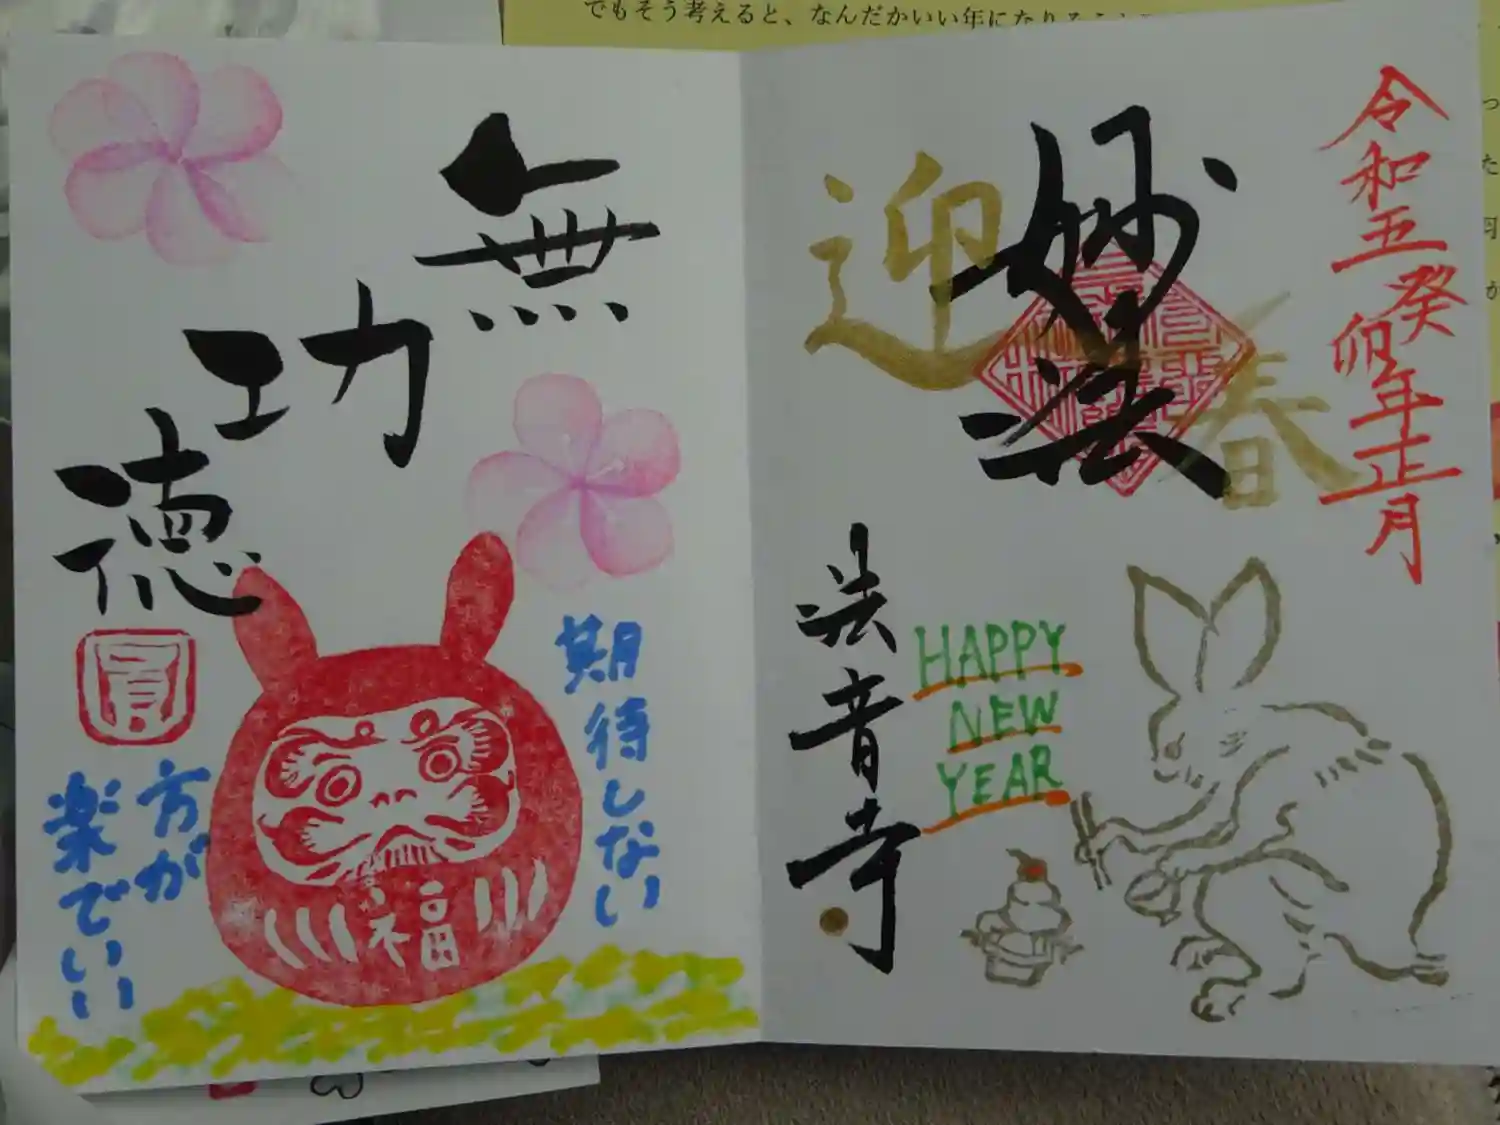 でもそう考えると、なんだかいい年になり
令和五癸卯年正月
迎春
妙法
法音寺
HAPPY
NEW
YEAR
無功徳
期待しない
方が
楽でいい
福